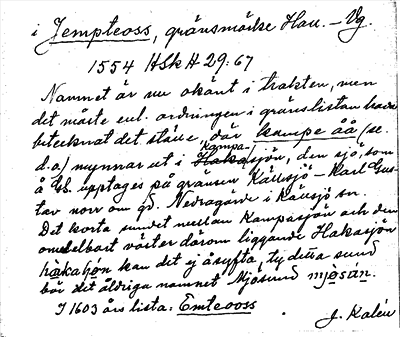 i Jempteoss, gränsmärke Hall. – Vg.
1554 HSkH 29:67
Namnet är nu okänt i trakten, men
det måste enl. ordningen i gränslistan ha
betecknat det ställe, där kampe åå (se
d.o.) mynnar ut i Kampa-
sjön, den sjö, som
å Gk. upptages på gränsen Källsjö – Karl Gus-
tav norr om gd. Nedragårde i Källsjö sn.
Det korta sundet mellan Kampasjön och den
omedelbart väster därom liggande Hakasjön
hakahjøn kan det ej åsyfta, ty detta sund
bär det åldriga namnet Mjösund mjøsún.
I 1603 års lista: Emteooss
J. Kalén